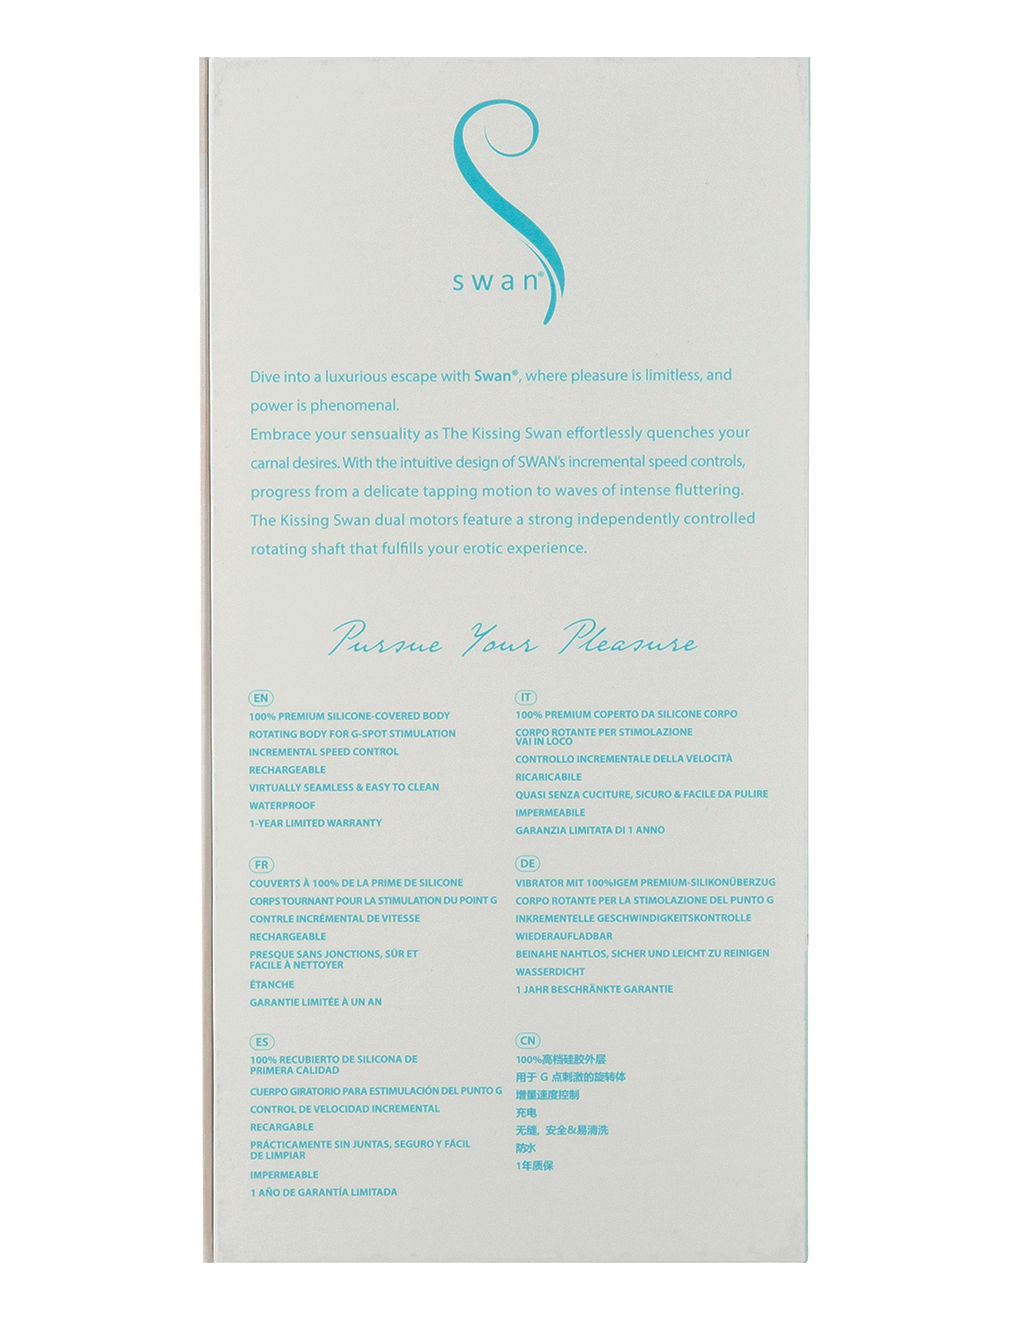 swan®
Dive into a luxurious escape with Swan®, where pleasure is limitless, and
power is phenomenal.
Embrace your sensuality as The Kissing Swan effortlessly quenches your
carnal desires. With the intuitive design of SWAN's incremental speed controls,
progress from a delicate tapping motion to waves of intense fluttering.
The Kissing Swan dual motors feature a strong independently controlled
rotating shaft that fulfills your erotic experience.
Pursue Your Pleasure
EN
100% PREMIUM SILICONE-COVERED BODY
ROTATING BODY FOR G-SPOT STIMULATION
INCREMENTAL SPEED CONTROL
RECHARGEABLE
VIRTUALLY SEAMLESS & EASY TO CLEAN
WATERPROOF
1-YEAR LIMITED WARRANTY
IT
100% PREMIUM COPERTO DA SILICONE CORPO
CORPO ROTANTE PER STIMOLAZIONE
VAI IN LOCO
CONTROLLO INCREMENTALE DELLA VELOCITÀ
RICARICABILE
QUASI SENZA CUCITURE, SICURO & FACILE DA PULIRE
IMPERMEABILE
GARANZIA LIMITATA DI 1 ANNO
FR
COUVERTS À 100% DE LA PRIME DE SILICONE
CORPS TOURNANT POUR LA STIMULATION DU POINT G
CONTRLE INCRÉMENTAL DE VITESSE
RECHARGEABLE
PRESQUE SANS JONCTIONS, SÛR ET
FACILE À NETTOYER
ÉTANCHE
GARANTIE LIMITÉE À UN AN
DE
VIBRATOR MIT 100%IGEM PREMIUM-SILIKONÜBERZUG
CORPO ROTANTE PER LA STIMOLAZIONE DEL PUNTO G
INKREMENTELLE GESCHWINDIGKEITSKONTROLLE
WIEDERAUFLADBAR
BEINAHE NAHTLOS, SICHER UND LEICHT ZU REINIGEN
WASSERDICHT
1 JAHR BESCHRÄNKTE GARANTIE
ES
100% RECUBIERTO DE SILICONA DE
PRIMERA CALIDAD
CUERPO GIRATORIO PARA ESTIMULACIÓN DEL PUNTO G
CONTROL DE VELOCIDAD INCREMENTAL
RECARGABLE
PRÁCTICAMENTE SIN JUNTAS, SEGURO Y FÁCIL
DE LIMPIAR
IMPERMEABLE
1 AÑO DE GARANTÍA LIMITADA
CN
100%高档硅胶外层
用于 G 点刺激的旋转体
增量速度控制
充电
无缝, 安全&易清洗
防水
1年质保